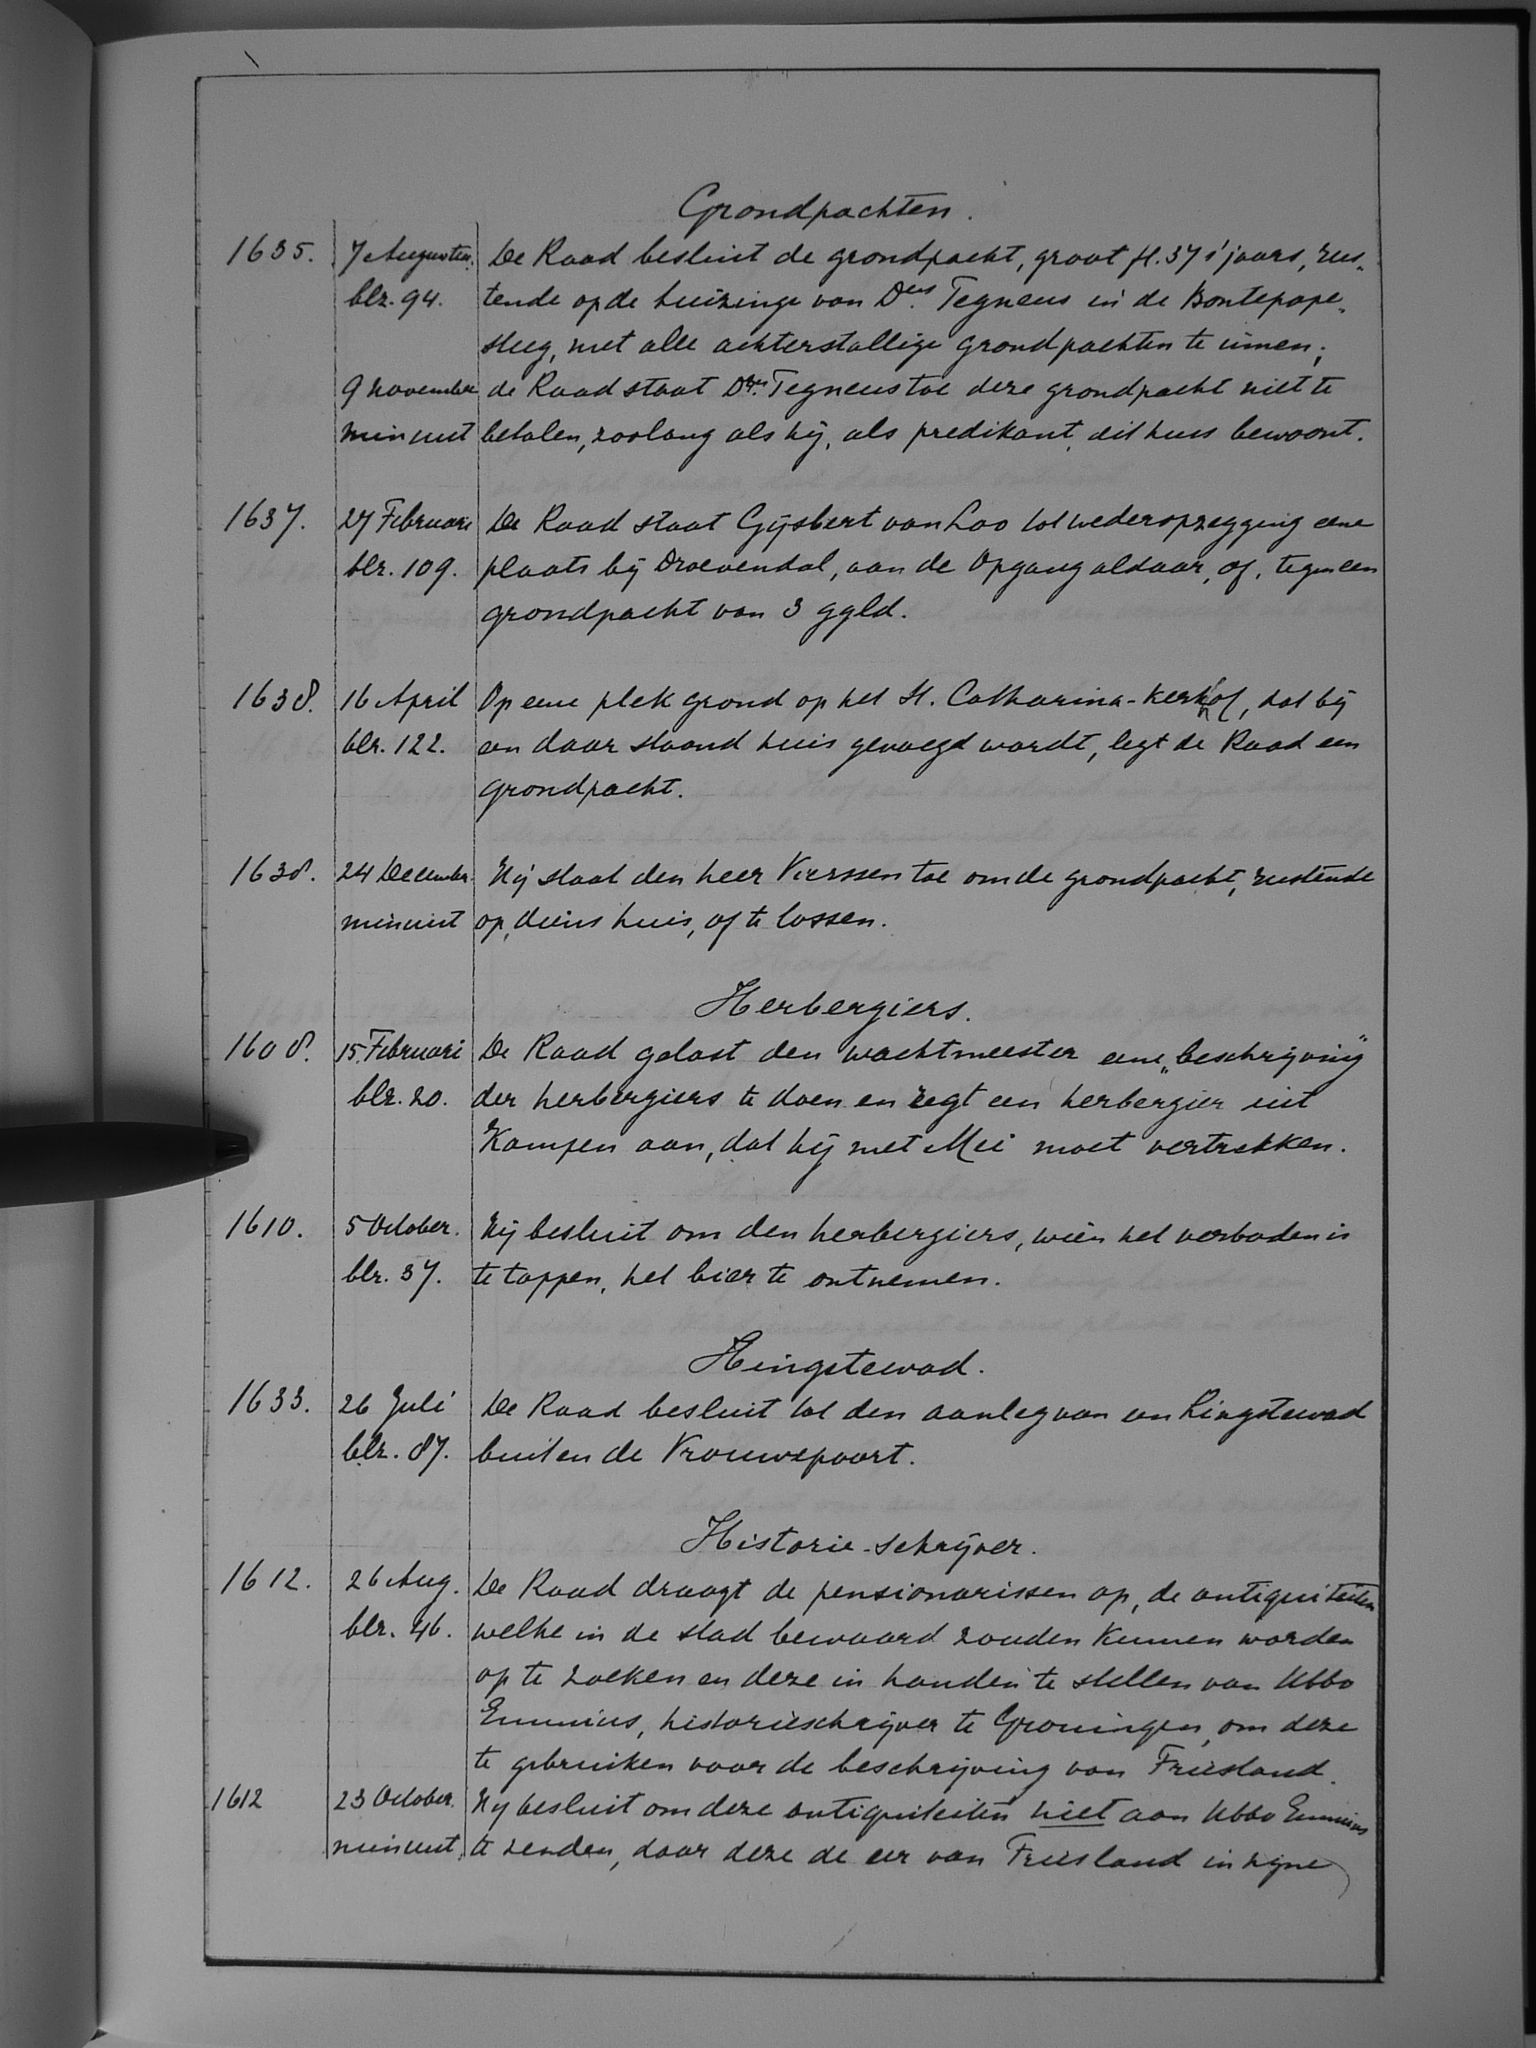 Grondpachten.
1635. 7 Augustus. De Raad besluit de grondpacht, groot fl. 37 's jaars, rus-
blz. 94. tende op de huizinge van Dus. Tegneus in de Bontepape-
steeg, met alle achterstallige grondpachten te innen;
9 November de Raad staat Ds. Tegneus toe deze grondpacht niet te
minuut betalen, zoolang als hij, als predikant, dit huis bewoont.
1637. 27 Februari De Raad staat Gijsbert van Loo tot wederopzegging eene
blz. 109. plaats bij Droevendal, aan de Opgang aldaar, af, tegen een
grondpacht van 3 ggld.
1638. 16 April Op eene plek grond op het St. Catharina-Kerkhof, dat bij
blz. 122. een daar staand huis gevoegd wordt, legt de Raad een
grondpacht.
1638. 24 December Hij staat den heer Vierssen toe om de grondpacht, rustende
minuut op diens huis, af te lossen.
Herbergiers.
1608. 15 Februari De Raad gelast den wachtmeester eene „beschrijving"
blz. 20. der herbergiers te doen en zegt een herbergier uit
Kampen aan, dat hij met Mei moet vertrekken.
1610. 5 October. Hij besluit om den herbergiers, wien het verboden is
blz. 37. te tappen, het bier te ontnemen.
Hingstewad.
1633. 26 Juli De Raad besluit tot den aanleg van een hingstewad
blz. 87. buiten de Vrouwepoort.
Historie-schrijver.
1612. 26 Aug. De Raad draagt de pensionarissen op, de antiquiteiten
blz. 46. welke in de stad bewaard zouden kunnen worden
op te zoeken en deze in handen te stellen van Ubbo
Emmius, historieschrijver te Groningen, om deze
te gebruiken voor de beschrijving van Friesland.
1612 23 October. Hij besluit om deze antiquiteiten niet aan Ubbo Emmius
minuut te zenden, daar deze de eer van Friesland in zijne